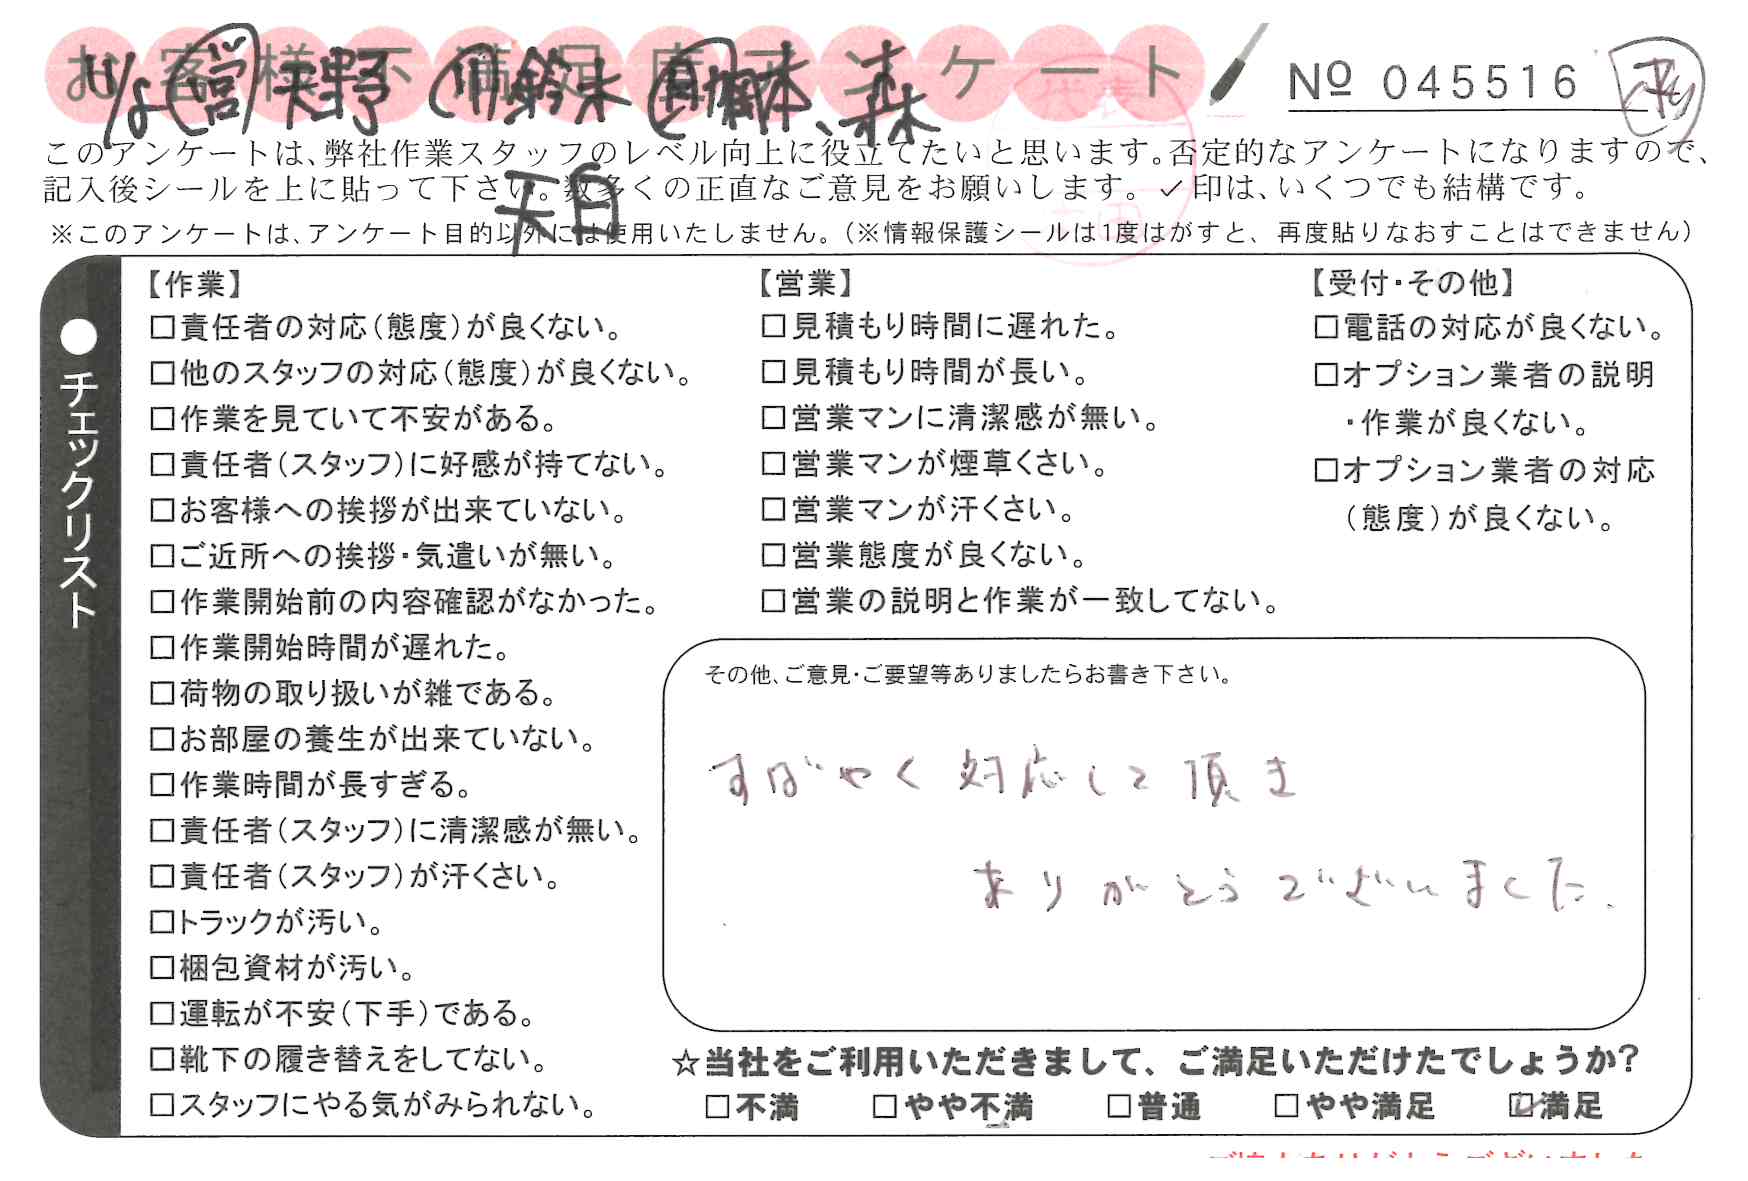 お客様不満足度アンケート
㊡矢野 鈴木 橋本、森
天目
№ 045516
このアンケートは、弊社作業スタッフのレベル向上に役立てたいと思います。否定的なアンケートになりますので、
記入後シールを上に貼って下さい。数多くの正直なご意見をお願いします。✓印は、いくつでも結構です。
※このアンケートは、アンケート目的以外には使用いたしません。(※情報保護シールは1度はがすと、再度貼りなおすことはできません)
●チェックリスト
【作業】
□責任者の対応(態度)が良くない。
□他のスタッフの対応(態度)が良くない。
□作業を見ていて不安がある。
□責任者(スタッフ)に好感が持てない。
□お客様への挨拶が出来ていない。
□ご近所への挨拶・気遣いが無い。
□作業開始前の内容確認がなかった。
□作業開始時間が遅れた。
□荷物の取り扱いが雑である。
□お部屋の養生が出来ていない。
□作業時間が長すぎる。
□責任者(スタッフ)に清潔感が無い。
□責任者(スタッフ)が汗くさい。
□トラックが汚い。
□梱包資材が汚い。
□運転が不安(下手)である。
□靴下の履き替えをしてない。
□スタッフにやる気がみられない。
【営業】
□見積もり時間に遅れた。
□見積もり時間が長い。
□営業マンに清潔感が無い。
□営業マンが煙草くさい。
□営業マンが汗くさい。
□営業態度が良くない。
□営業の説明と作業が一致してない。
【受付・その他】
□電話の対応が良くない。
□オプション業者の説明
・作業が良くない。
□オプション業者の対応
(態度)が良くない。
その他、ご意見・ご要望等ありましたらお書き下さい。
すばやく対応して頂き
ありがとうございました.
☆当社をご利用いただきまして、ご満足いただけたでしょうか?
□不満 □やや不満 □普通 □やや満足 ☑満足